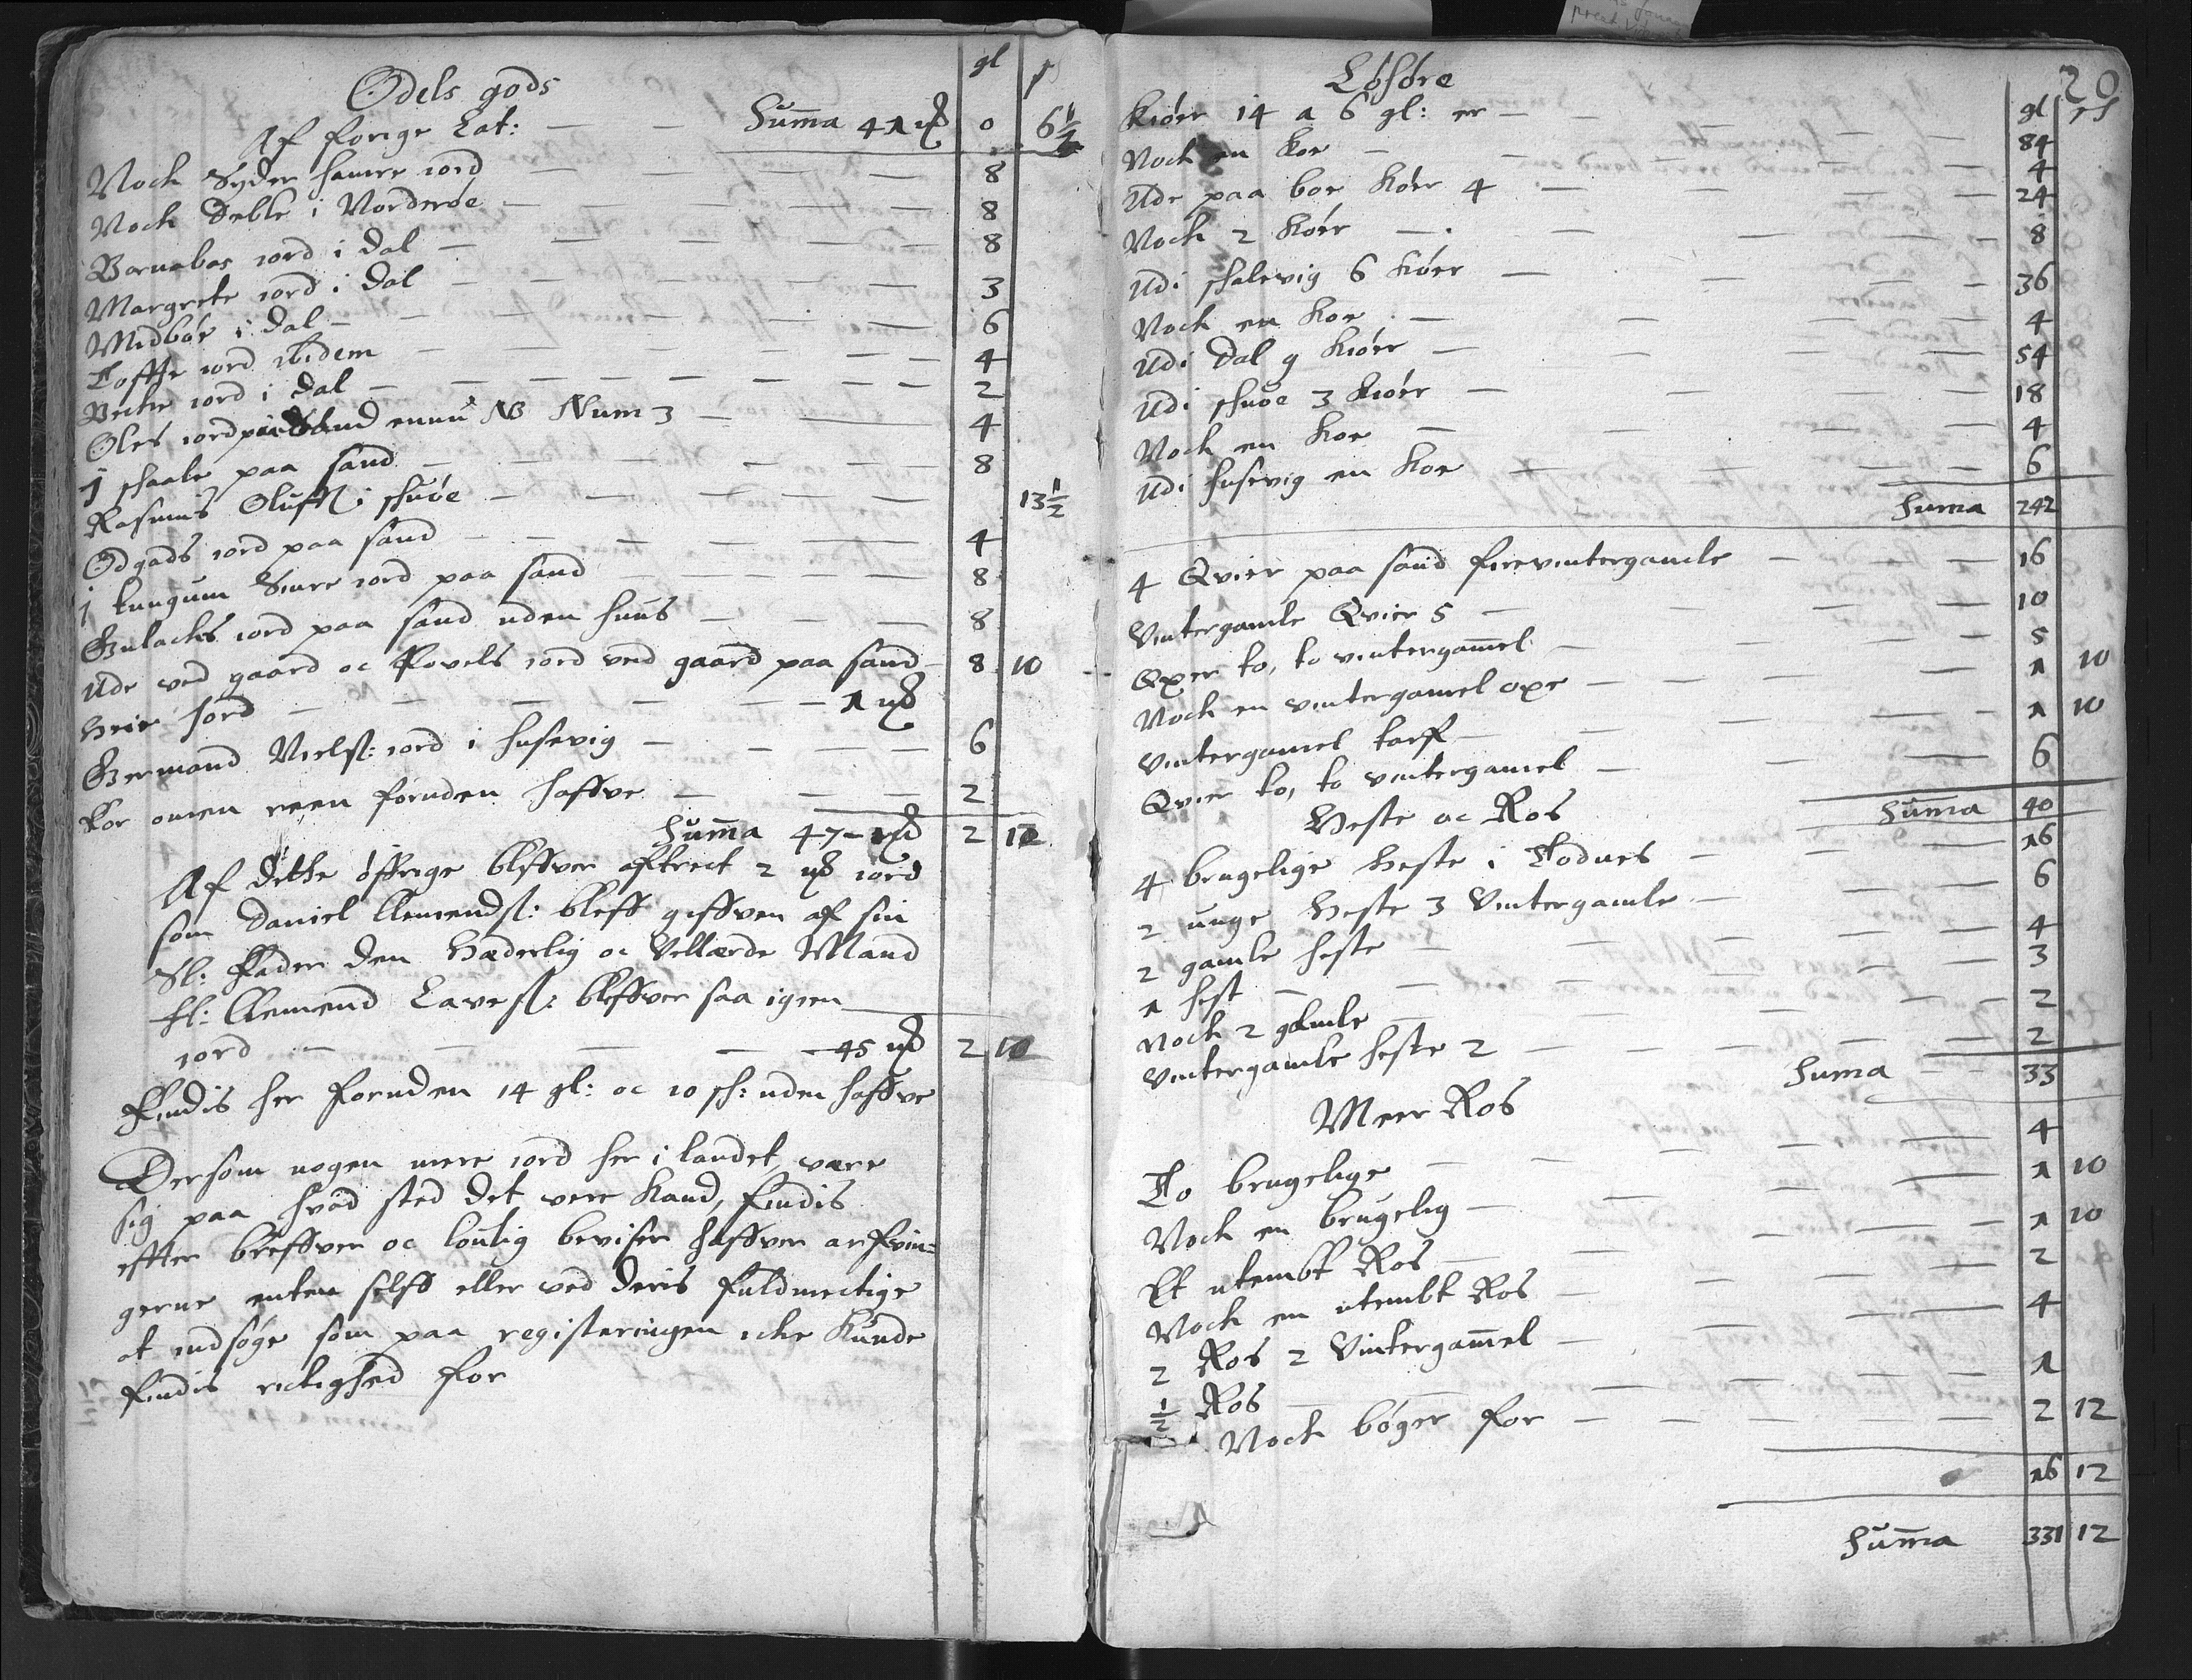 Odels gods
gl
Af forige Lat: — — Summa 41 0 6½
Noch Syder hamre iord — 8
Noch Deble i Norderøe — 8
Barnabas iord i Dal — 8
Margrete iord i Dal — 3
Midbør i Dal — 6
Toffte iord ibidem — 4
iord i Dal — 2
Oles iord paa Sand NB Num 3 — 4
j schaale paa Sand — 8
Rasmus Oluffs: i schuøe — 13½
Odgads iord paa Sand — 4
j tungum Siure iord paa Sand — 8
iord paa Sand uden huus — 8
Ude ved gaard oc Povels iord ved gaard paa Sand 8 10
iord — 1
Germand Nielss: iord i husevig — 6
for foruden haffve — 2
Summa 47 2 10
Af dette øffrige bliffver aftrect 2 iord
som Daniel Clemendss: bleff giffven af sin
Sl: Fader den Hæderlig oc Vellærde Mand
Hl: Clemend Lavess: bliffver saa igien
iord — 45 2 10
Findis her foruden 14 gl: oc 10 sch: uden haffve
Dersom nogen mere iord her i landet, være
sig paa hvad sted det vere kand, findis
effter breffver oc loulig beviser haffver arfvin=
gerne enten selff eller ved deris fuldmectige
at indsøge som paa registeringen icke kunde
findis rictighed for
20
Løsøre
gl
Kiøer 14 a 6 gl: er — 84
Noch en Koe — 4
Ude paa bøe Køer 4 — 24
Noch 2 Køer — 8
Udi schalevig 6 Kiøer — 36
Noch en Koe — 4
Udi Dal 9 Kiøer — 54
Udi schuøe 3 Kiøer — 18
Noch en Koe — 4
Udi husevig en Koe — 6
Summa 242
4 Qvier paa Sand firevintergamle — 16
Vintergamle Qvier 5 — 10
Oxer to, to vintergammel — 5
Noch en vintergamel oxe — 1 10
Vintergamel — 1 10
Qvier to, to vintergamel — 6
Summa 40
Heste oc Ros
4 brugelige Heste i Todnes — 16
2 unge Heste 3 Vintergamle — 6
2 gamle heste — 4
1 hest — 3
Noch 2 gamle — 2
Vintergamle heste 2 — 2
Summa — 33
Meer Ros
To brugelige — 4
Noch en brugelig — 1 10
Et utembt Ros — 1 10
Noch en utembt Ros — 2
2 Ros 2 Vintergammel — 4
½ Ros — 1
Noch bøger for — 2 12
16 12
Summa 331 12